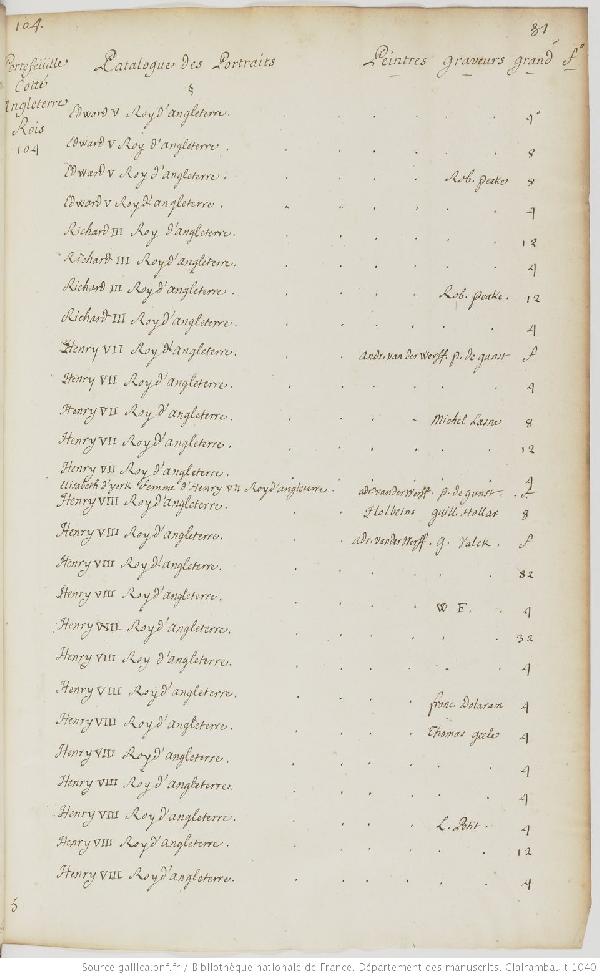 104. 81
Portefeuille Catalogue des Portraits Peintres graveurs grandr fo
Cotté
angleterre
Rois
104
Edward V Roy d'angleterre. 4o
Edward V Roy d'angleterre. 8
Edward V Roy d'angleterre. Rob. Peake 8
Edward V Roy d'angleterre. 4
Richard III Roy d'angleterre. 12
Richard III Roy d'angleterre. 4
Richard III Roy d'angleterre. Rob. Peake. 12
Richard III Roy d'angleterre. 4
Henry VII Roy d'angleterre. andr. van der Werff p. de gunst f
Henry VII Roy d'angleterre. 4
Henry VII Roy d'angleterre. Michel Lasne 8
Henry VII Roy d'angleterre. 12
Henry VII Roy d'angleterre. 4
Elisabeth d'york femme d'Henry VII Roy d'angleterre. adr. vander Werff. p. de gunst. f
Henry VIII Roy d'angleterre. Holbeins guill. Hollar 8
Henry VIII Roy d'angleterre. adr. vander Werff. G. Valck. f
Henry VIII Roy d'angleterre. 82
Henry VIII Roy d'angleterre. W F. 4
Henry VIII Roy d'angleterre. 32
Henry VIII Roy d'angleterre. 4
Henry VIII Roy d'angleterre. franc. Delaram 4
Henry VIII Roy d'angleterre. Thomas geele 4
Henry VIII Roy d'angleterre. 4
Henry VIII Roy d'angleterre. 4
Henry VIII Roy d'angleterre. L. Petit. 4
Henry VIII Roy d'angleterre. 12
Henry VIII Roy d'angleterre. 4
Source gallica.bnf.fr / Bibliothèque nationale de France. Département des manuscrits. Clairambault 1040